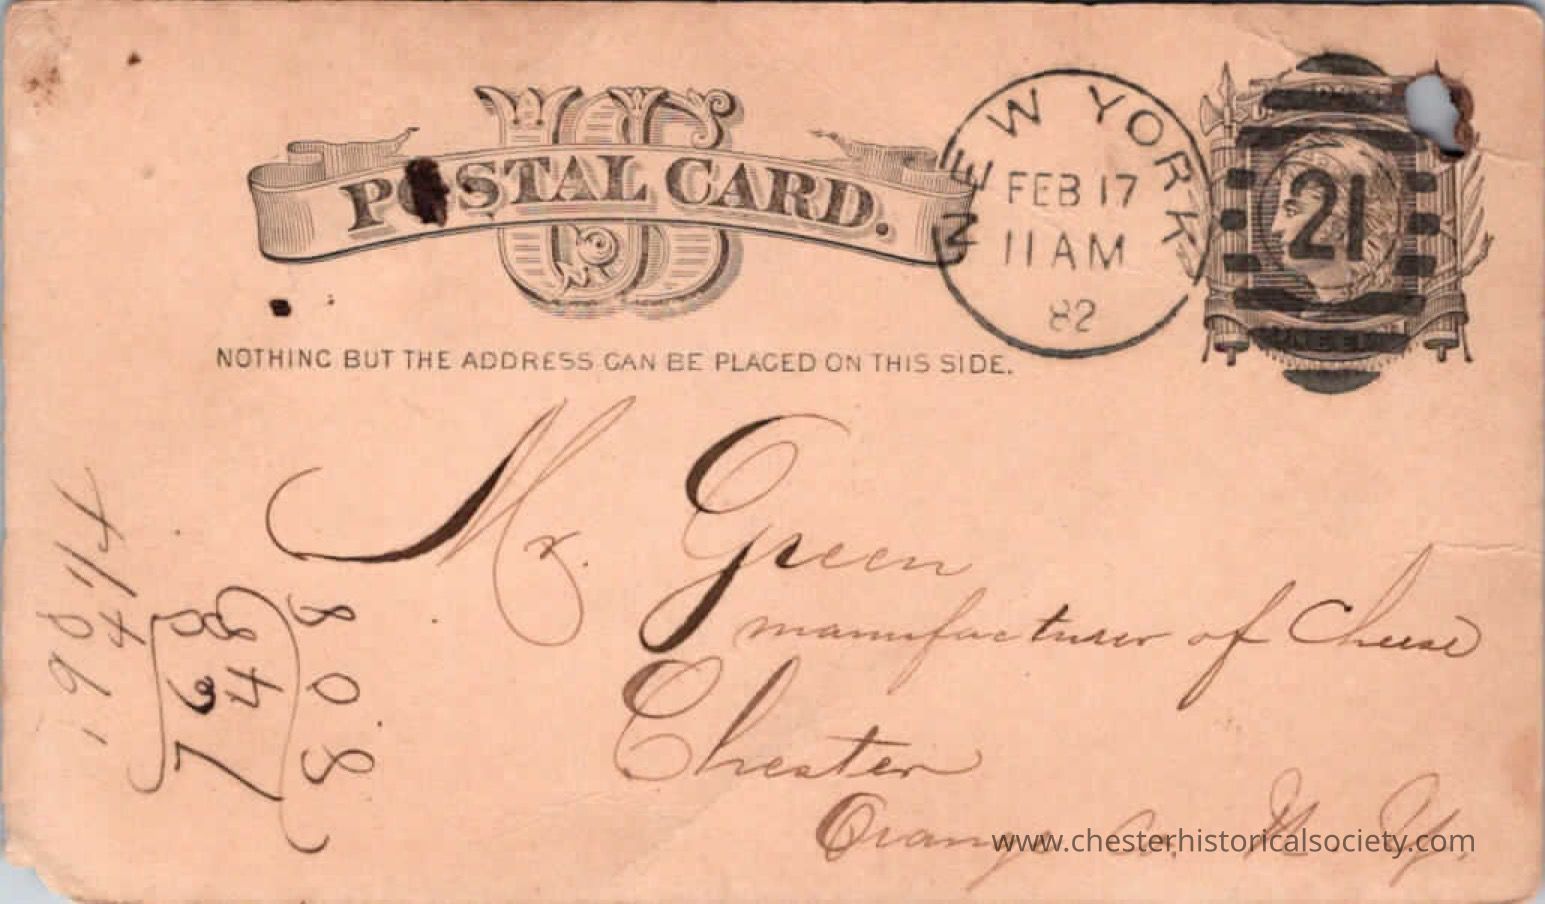 US
POSTAL CARD.
NEW YORK
FEB 17
11 AM
82
21
NOTHING BUT THE ADDRESS CAN BE PLACED ON THIS SIDE.
Mr. Green
manufacturer of Cheese
Chester
Orange Co. N. Y.
www.chesterhistoricalsociety.com
808